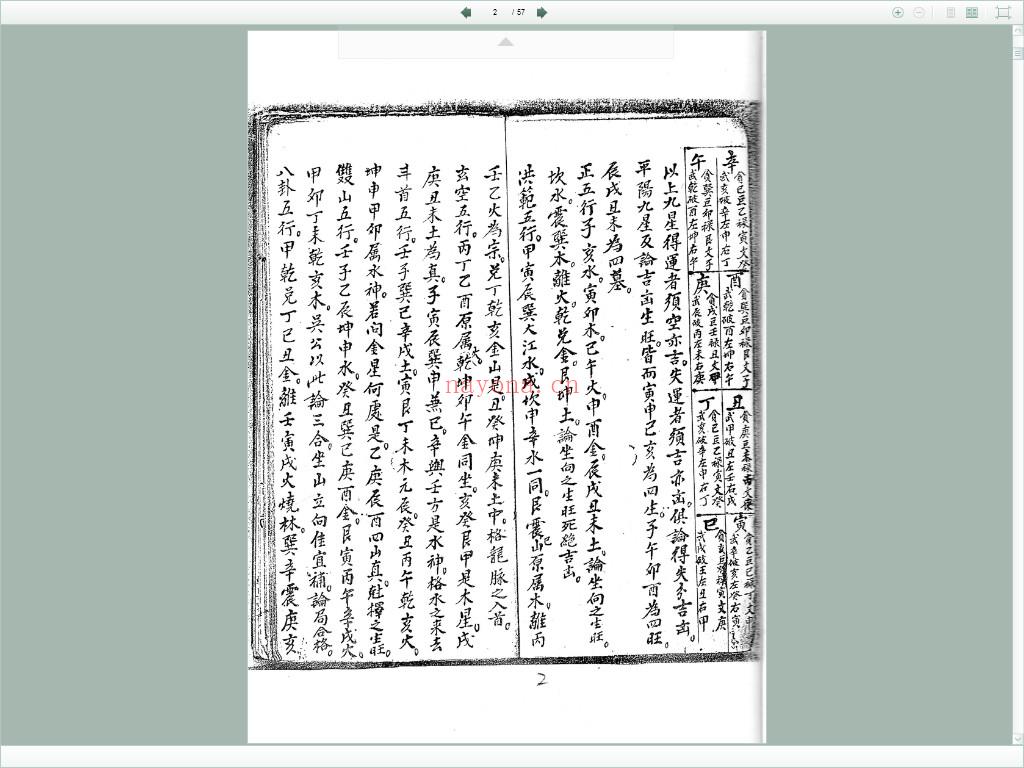 2 / 57
辛
貪巳巨乙祿寅文癸
武亥破辛左申右丁
酉
貪巽巨卯祿艮文子
武乾破酉左坤右午
丑
貪庚巨未祿
武甲破丑左壬右戌
寅
貪乙巨巳祿丁文申
武辛破亥左癸右寅
午
貪巽巨卯祿艮文子
武乾破酉左坤右午
庚
貪戌巨壬祿丑文甲
武辰破丙左未右庚
丁
貪巳巨乙祿寅文癸
武亥破辛左申右丁
巳
武戌破壬左丑右甲
以上九星得運者須空亦吉。失運者須吉亦凶。俱論得失分吉凶。
平陽九星及論吉凶生旺皆而寅申巳亥為四生。子午卯酉為四旺。
辰戌丑未為四墓。
正五行子亥水。寅卯木。巳午火。申酉金。辰戌丑未土。論坐向之生旺。
坎水。震巽木。離火。乾兌金。艮坤土。論坐向之生旺死絕吉凶。
洪範五行。甲寅辰巽大江水。戌坎申辛水一同。艮震巳山原属木。離丙
壬乙火為宗。兌丁乾亥金山是。丑癸坤庚未土中。格龍脈之入首。
玄空五行。丙丁乙酉原属火。乾坤卯午金同坐。亥癸艮甲是木星。戌
庚丑未土為真。子寅辰巽申兼巳。辛與壬方是水神。格水之來去
斗首五行。壬子巽巳辛戌土。寅艮丁未木元辰。癸丑丙午乾亥火。
坤申甲卯属水神。若问金星何處是。乙庚辰酉四山真。尅擇之生旺。
雙山五行。壬子乙辰坤申水。癸丑巽巳庚酉金。艮寅丙午辛戌火。
甲卯丁未乾亥木。吳公以此論三合。坐山立向佳宜補。論局合格。
八卦五行。甲乾兌丁巳丑金。離壬寅戌火燒林。巽辛震庚亥
nayona.cn
2